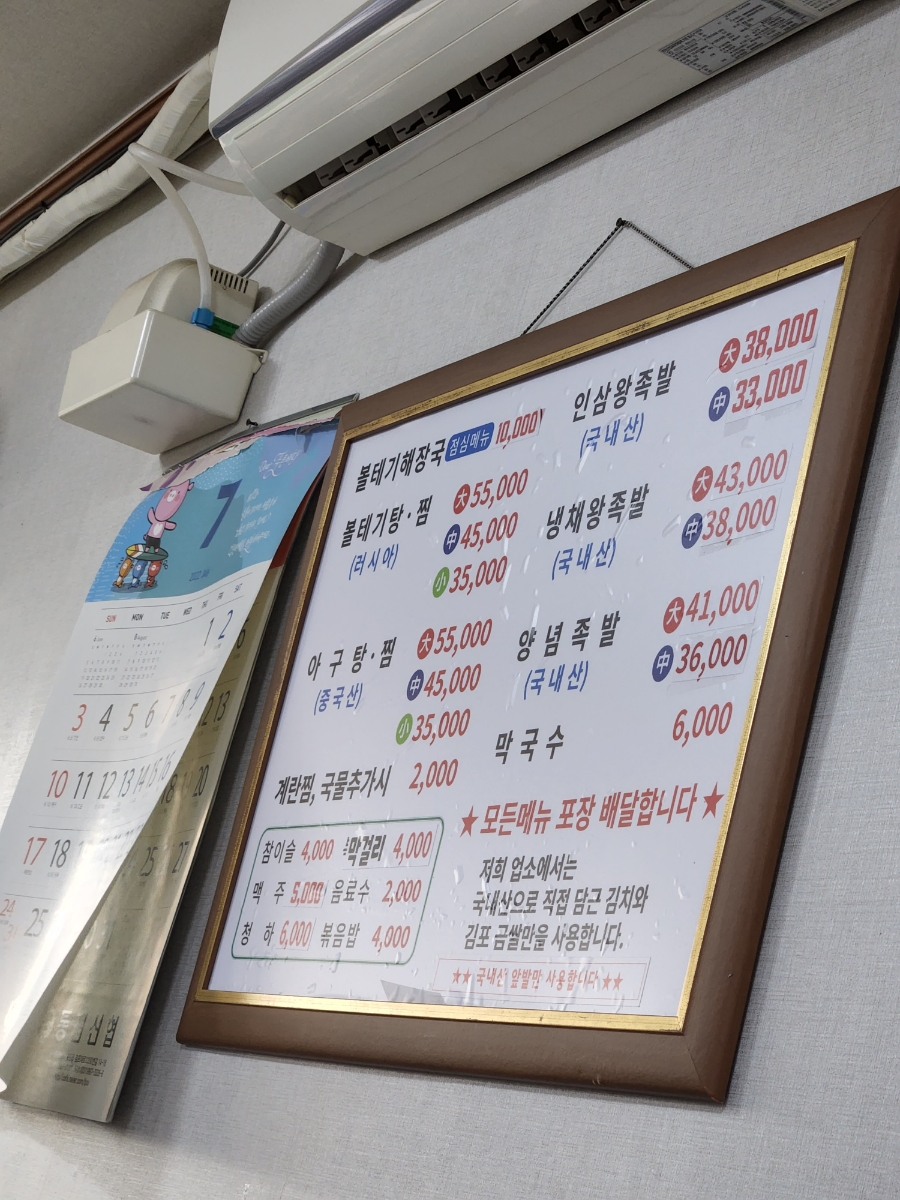 볼테기해장국 점심메뉴 10,000
볼테기탕·찜 大 55,000
(러시아) 中 45,000
小 35,000
아구탕·찜 大 55,000
(중국산) 中 45,000
小 35,000
계란찜, 국물추가시 2,000
참이슬 4,000 막걸리 4,000
맥 주 5,000 음료수 2,000
청 하 6,000 볶음밥 4,000
인삼왕족발 大 38,000
(국내산) 中 33,000
냉채왕족발 大 43,000
(국내산) 中 38,000
양념족발 大 41,000
(국내산) 中 36,000
막국수 6,000
★ 모든메뉴 포장 배달합니다 ★
저희 업소에서는
국내산으로 직접 담근 김치와
김포 금쌀만을 사용합니다.
★★ 국내산 앞발만 사용합니다 ★★
7
SUN MON TUE WED THU FRI SAT
1 2
3 4 5 6 7 8 9
10 11 12 13 14 15 16
17 18
24 25
31
6
12 13
18 19 20
25 27
신협